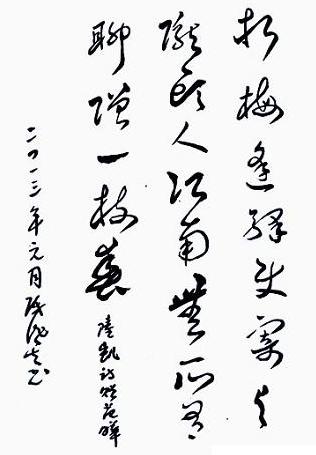 折梅逢驿使寄与
隴頭人江南無所有
聊贈一枝春 陸凱诗赠范曄
二〇一三年元月 书